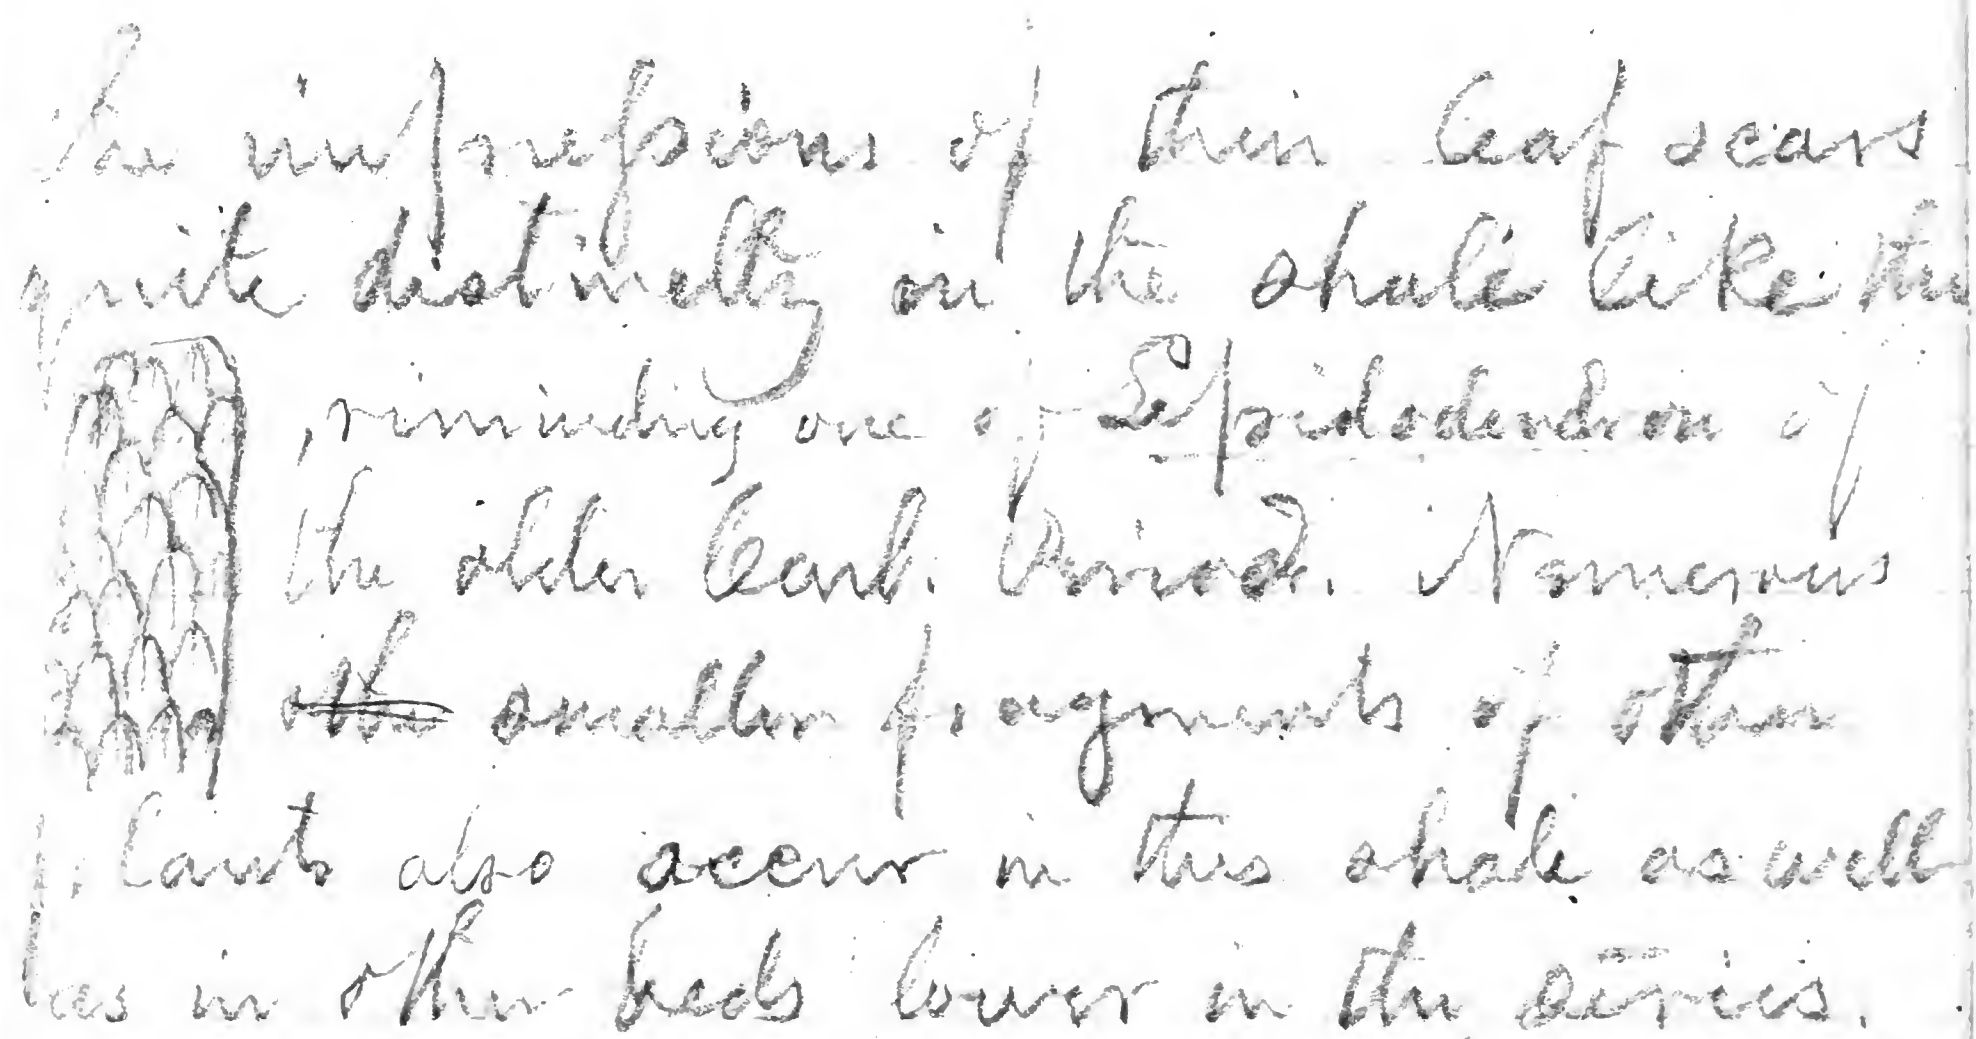 the impressions of their leaf scars
quite distinctly on the shale like this
, reminding one of Lepidodendron of
the older Carb. Period. Numerous
other smaller fragments of other
plants also occur in this shale as well
as in other beds lower in the series.